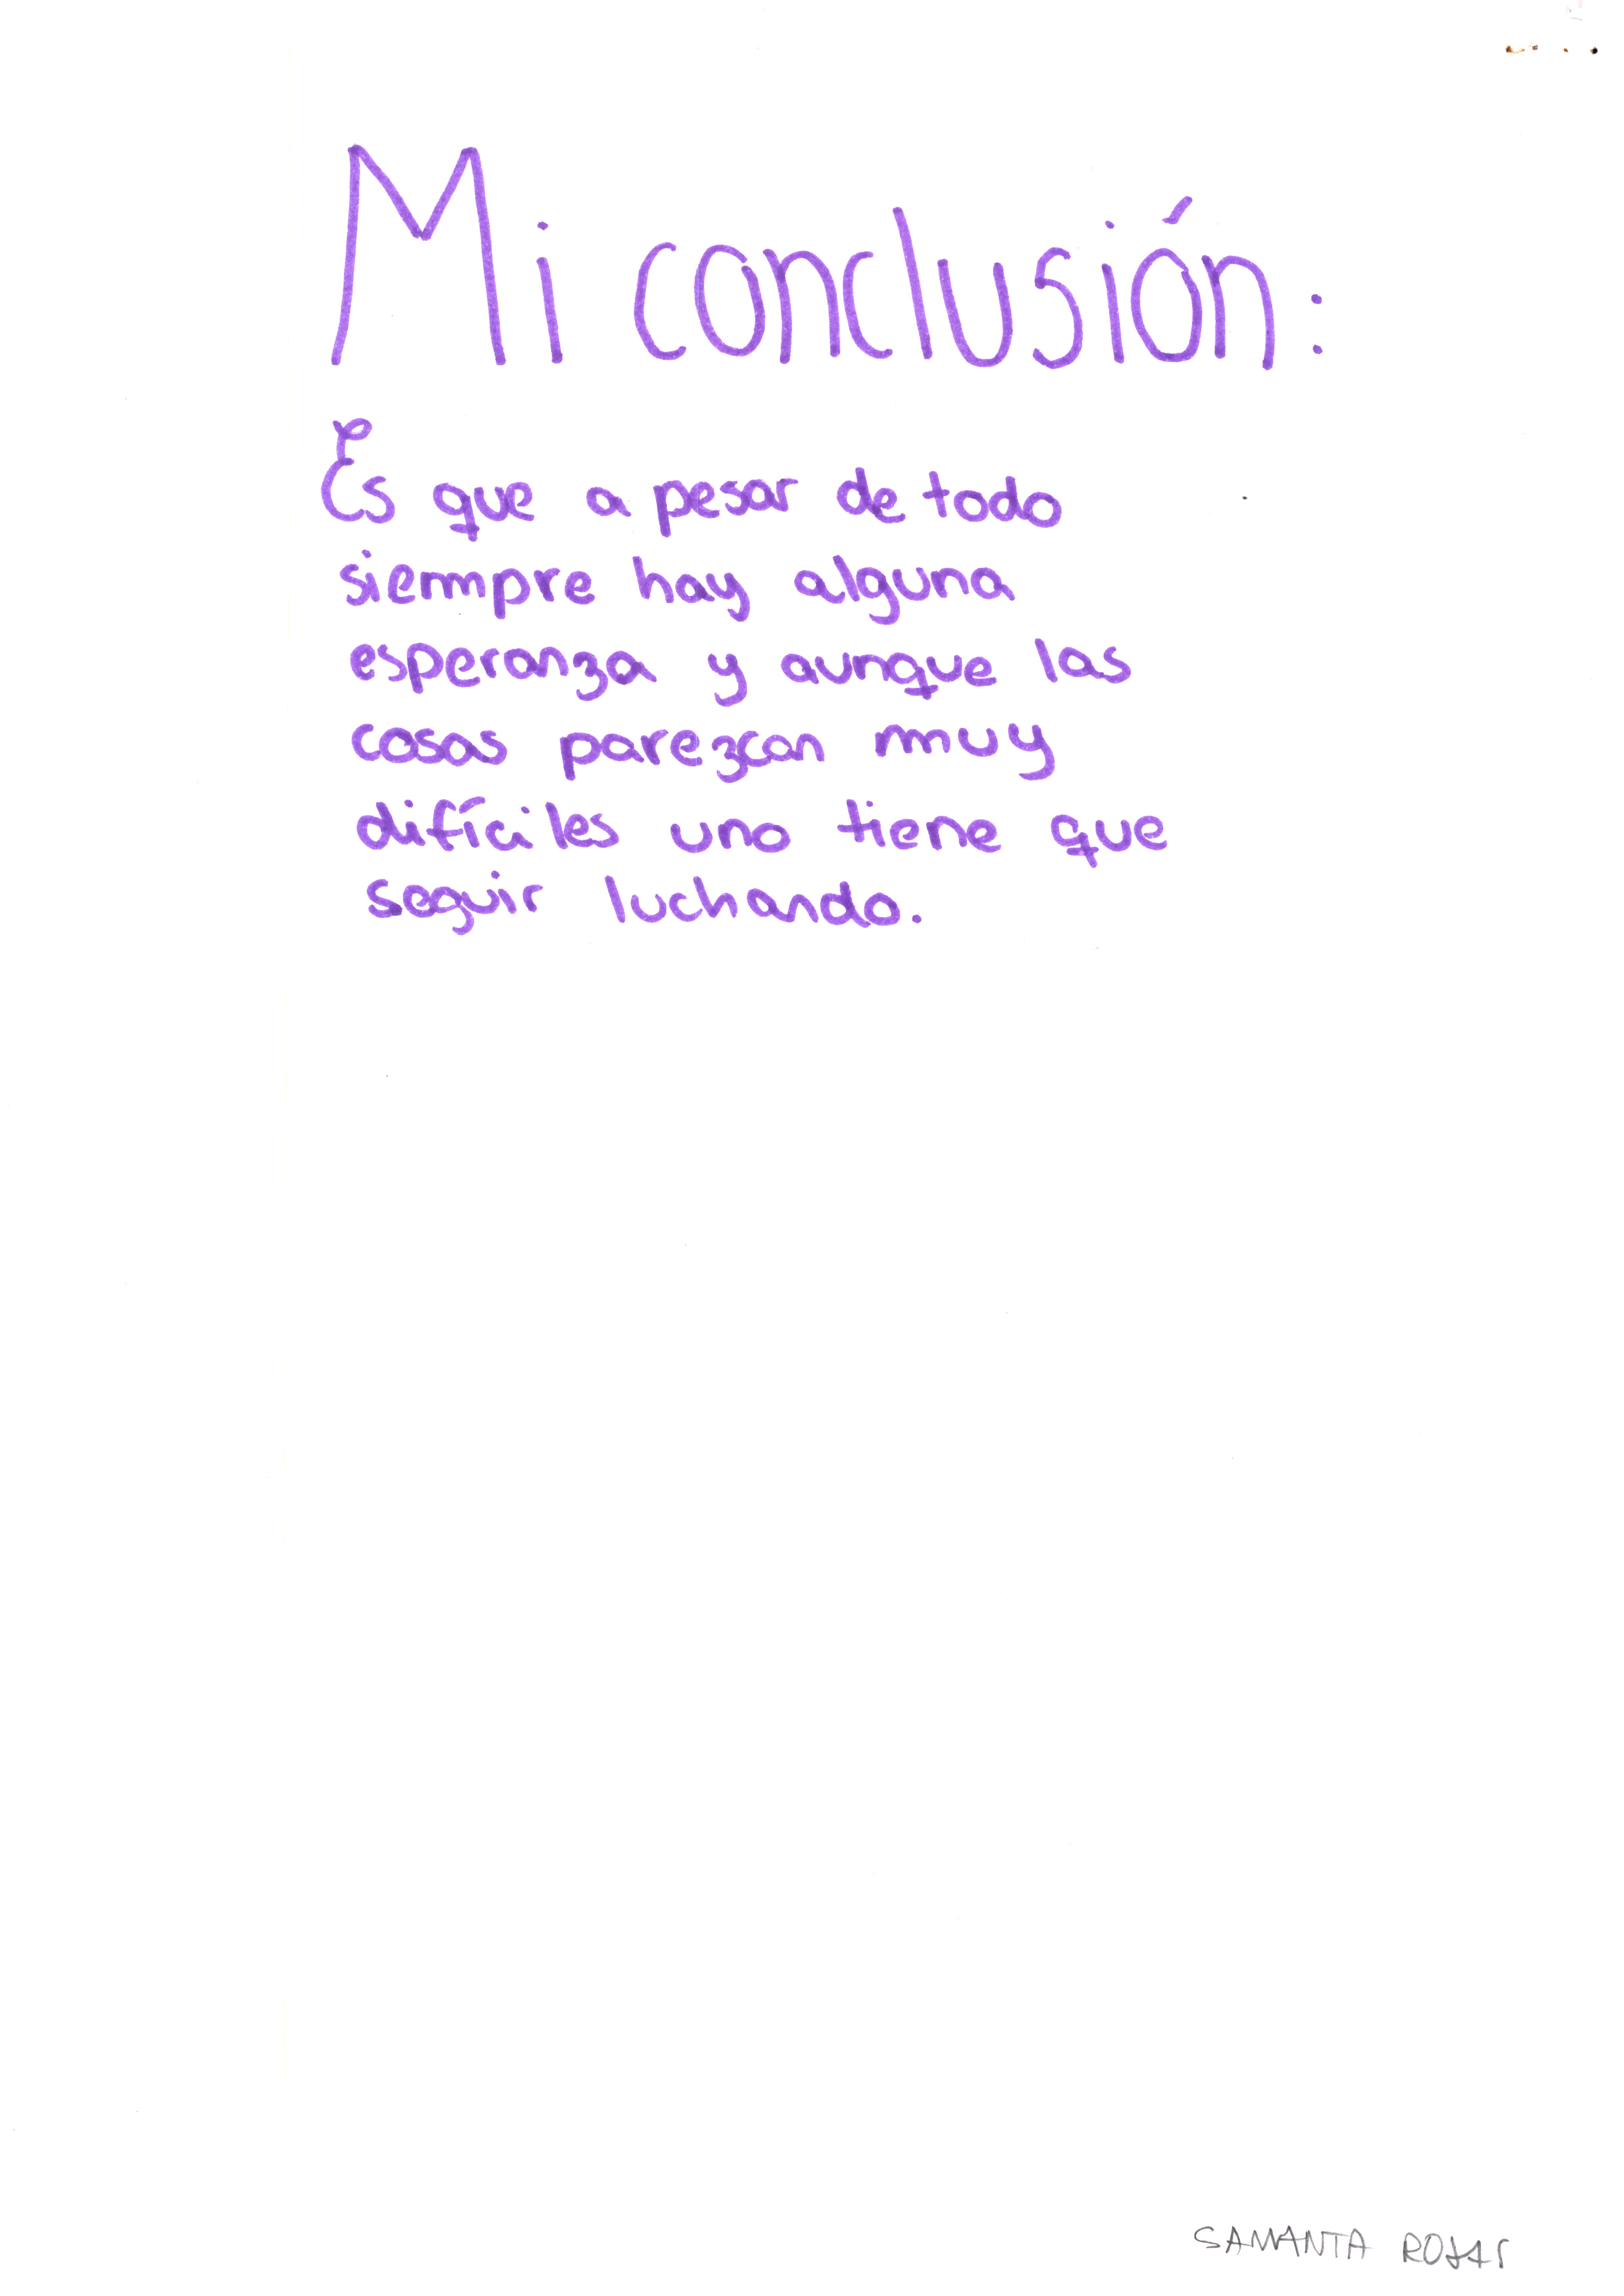 Mi conclusión:
Es que a pesar de todo
siempre hay alguna
esperanza y aunque las
cosas parezcan muy
difíciles uno tiene que
seguir luchando.
SAMANTA ROJAS